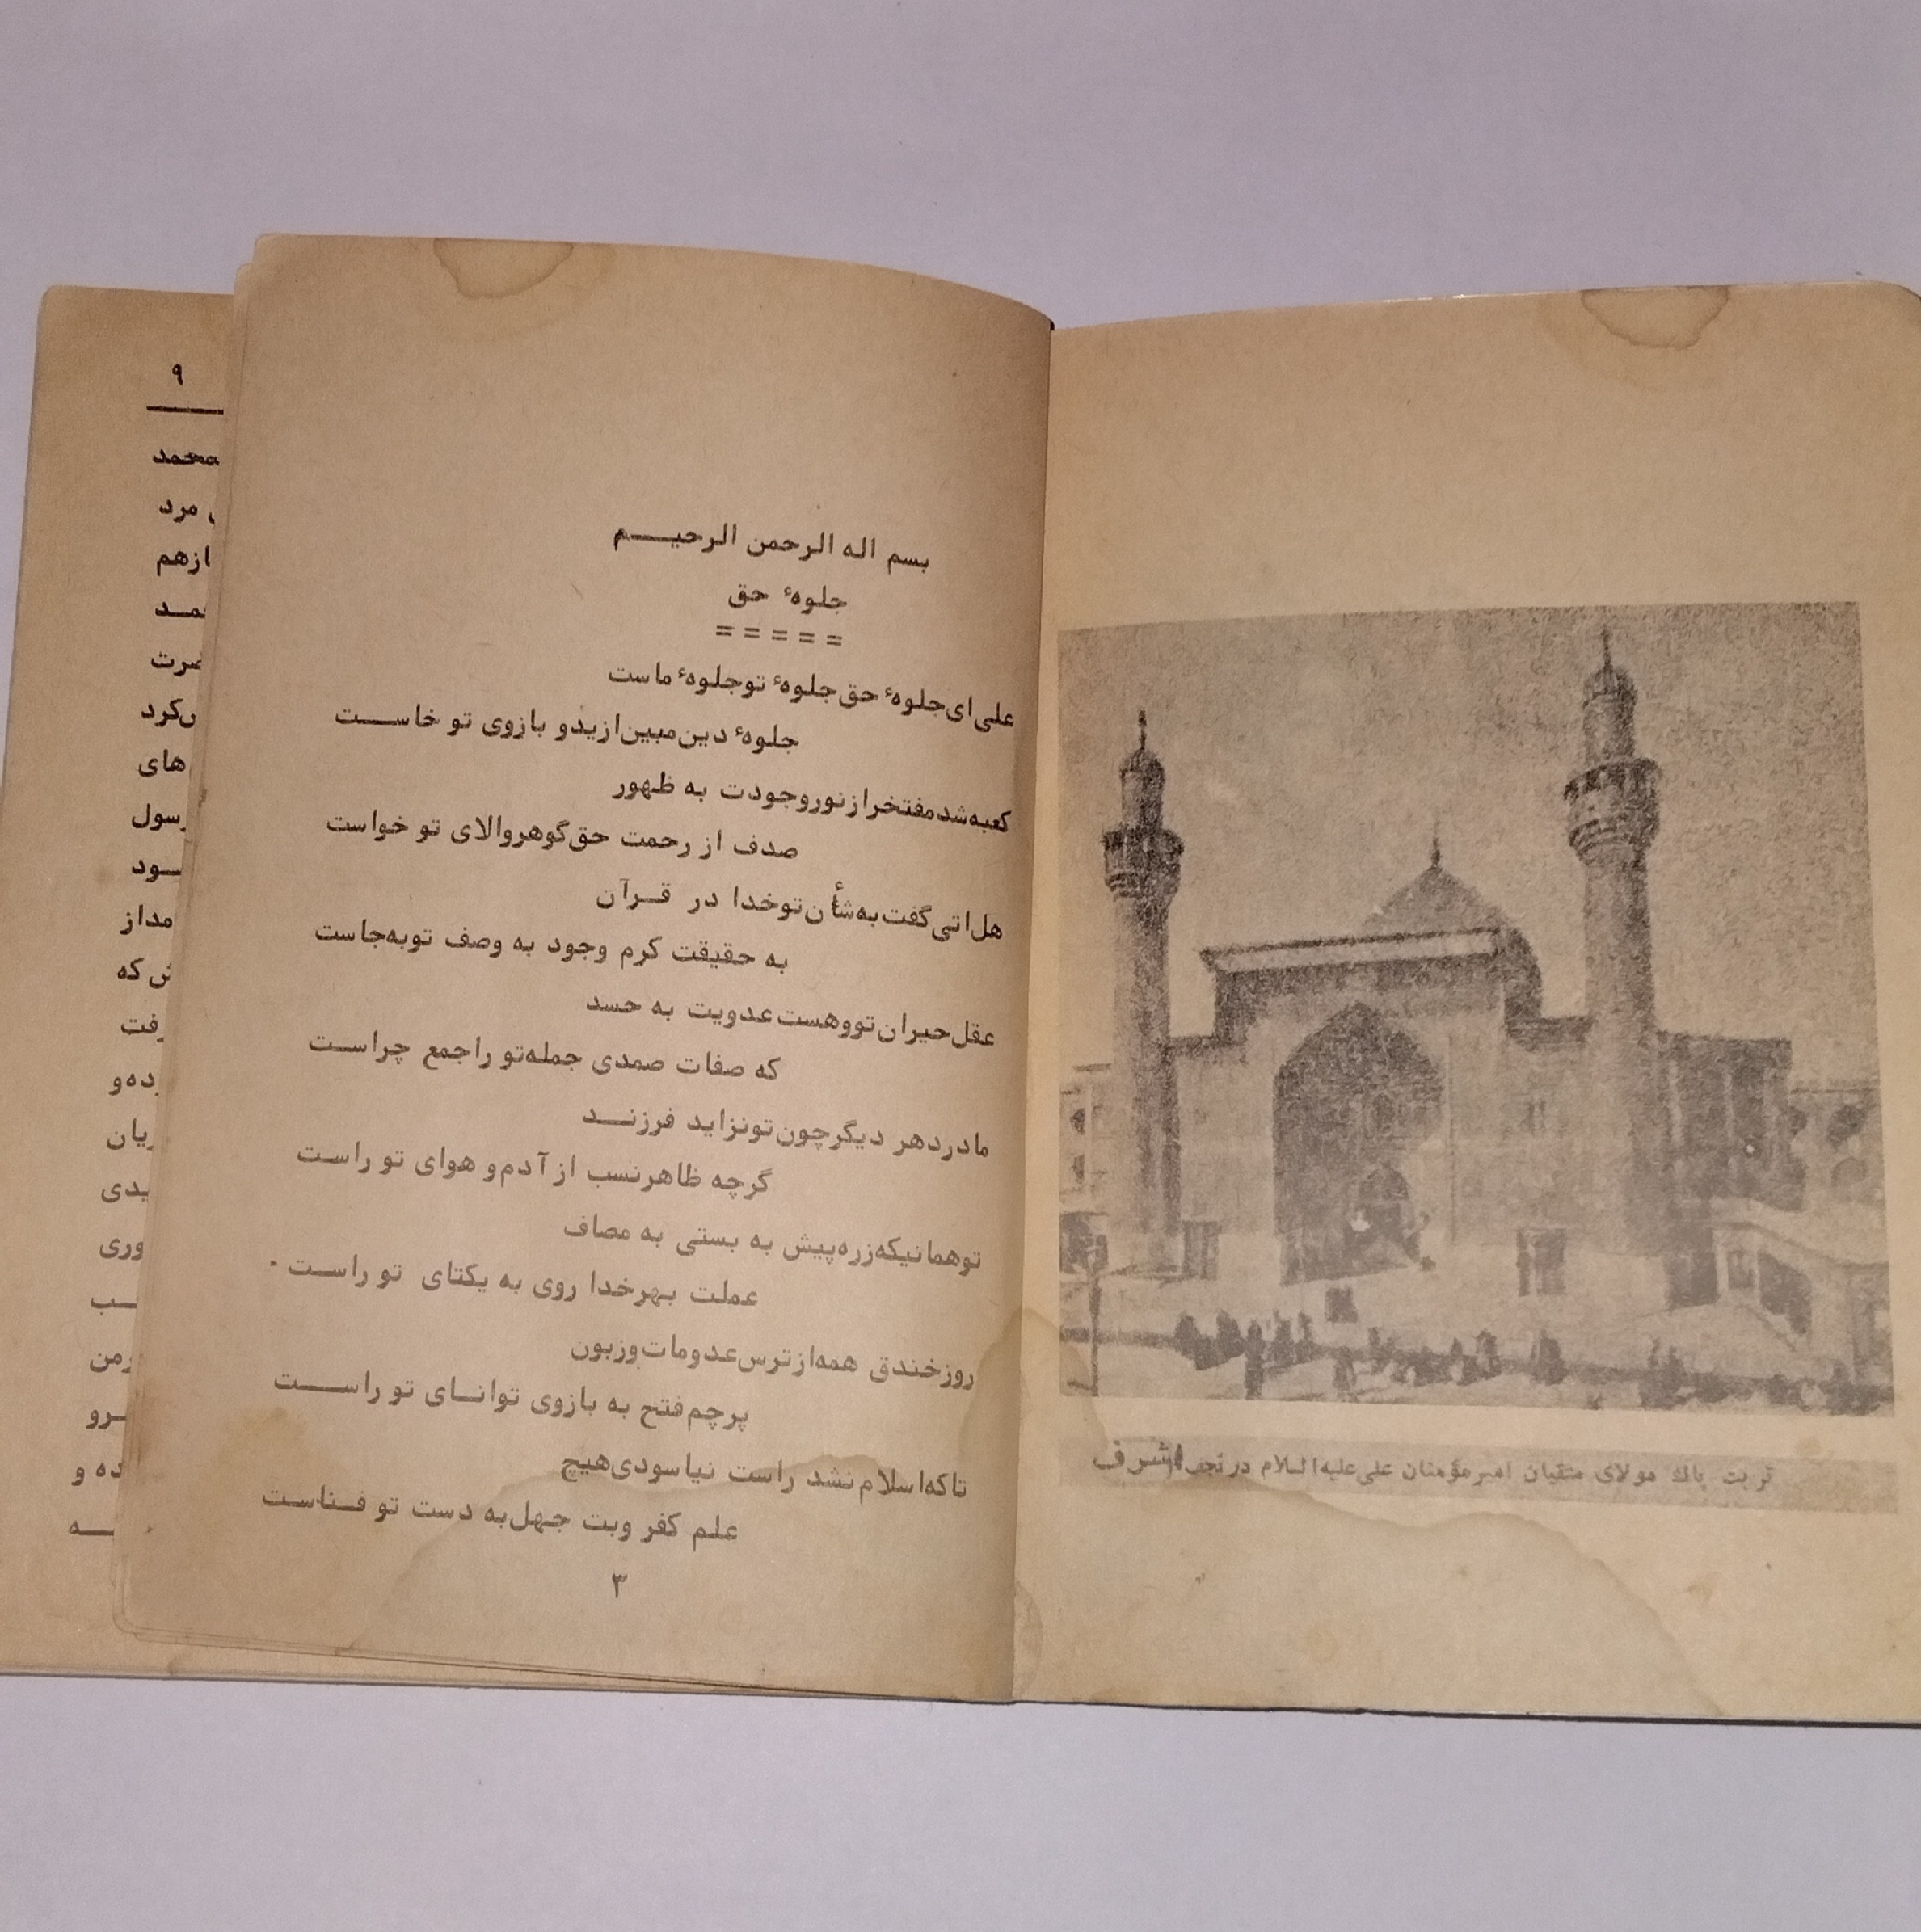 تربت پاك مولای متقیان امیرمؤمنان علی علیه السلام در نجف اشرف
بسم اله الرحمن الرحیم
جلوهٔ حق
=====
علی ای جلوهٔ حق جلوهٔ تو جلوهٔ ماست
جلوهٔ دین مبین از ید و بازوی تو خاست
کعبه شد مفتخر از نور وجودت به ظهور
صدف از رحمت حق گوهر والای تو خواست
هل اتی گفت به شأن تو خدا در قرآن
به حقیقت کرم وجود به وصف تو به جاست
عقل حیران تو و هست عدویت به حسد
که صفات صمدی جمله تو را جمع چراست
مادر دهر دیگر چون تو نزاید فرزند
گرچه ظاهر نسب از آدم و هوای تو راست
تو همانیکه زره پیش به بستی به مصاف
عملت بهر خدا روی به یکتای تو راست ۰
روز خندق همه از ترس عدو مات و زبون
پرچم فتح به بازوی توانای تو راست
تا که اسلام نشد راست نیاسودی هیچ
علم کفر وبت جهل به دست تو فناست
۳
۹
محمد
مرد
ازهم
کرد
های
که